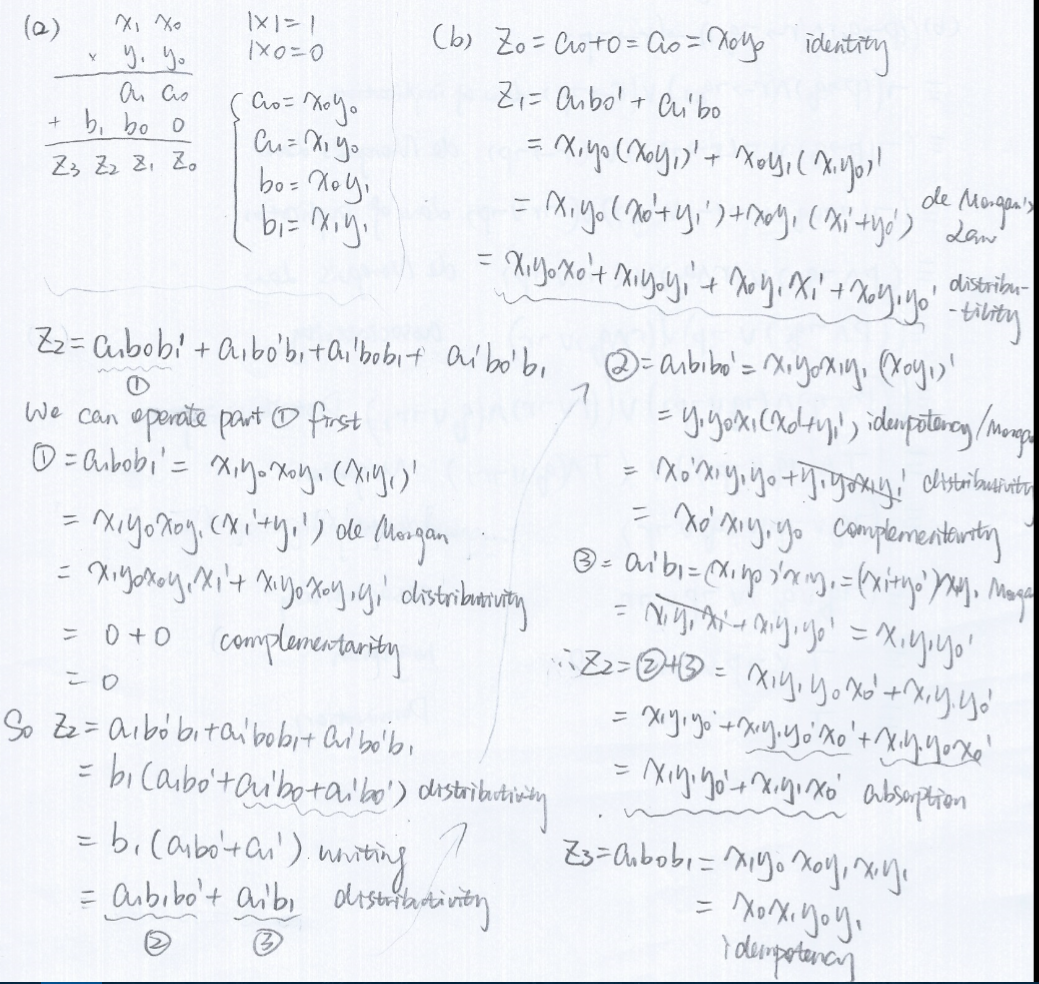 (a)
x₁ x₀
× y₁ y₀
a₁ a₀
+ b₁ b₀ 0
Z₃ Z₂ Z₁ Z₀
1×1=1
1×0=0
a₀=x₀y₀
a₁=x₁y₀
b₀=x₀y₁
b₁=x₁y₁
(b) Z₀=a₀+0=a₀=x₀y₀ identity
Z₁=a₁b₀'+a₁'b₀
=x₁y₀(x₀y₁)'+x₀y₁(x₁y₀)'
=x₁y₀(x₀'+y₁')+x₀y₁(x₁'+y₀') de Morgan's Law
=x₁y₀x₀'+x₁y₀y₁'+x₀y₁x₁'+x₀y₁y₀' distribu-
-tility
Z₂=a₁b₀b₁'+a₁b₀'b₁+a₁'b₀b₁+a₁'b₀'b₁
①
We can operate part ① first
①=a₁b₀b₁'=x₁y₀x₀y₁(x₁y₁)'
=x₁y₀x₀y₁(x₁'+y₁') de Morgan
=x₁y₀x₀y₁x₁'+x₁y₀x₀y₁y₁' distributivity
=0+0 complementarity
=0
So Z₂=a₁b₀'b₁+a₁'b₀b₁+a₁'b₀'b₁
=b₁(a₁b₀'+a₁'b₀+a₁'b₀') distributivity
=b₁(a₁b₀'+a₁') uniting
=a₁b₁b₀'+a₁'b₁ distributivity
② ③
②=a₁b₁b₀'=x₁y₀x₁y₁(x₀y₁)'
=y₁y₀x₁(x₀'+y₁') idempotency/Morga
=x₀'x₁y₁y₀+y₁y₀x₁y₁' distributivity
=x₀'x₁y₁y₀ complementarity
③=a₁'b₁=(x₁y₀)'x₁y₁=(x₁'+y₀')x₁y₁ Morga
=x₁y₁x₁'+x₁y₁y₀'=x₁y₁y₀'
∴Z₂=②+③=x₁y₁y₀x₀'+x₁y₁y₀'
=x₁y₁y₀'+x₁y₁y₀'x₀'+x₁y₁y₀x₀'
=x₁y₁y₀'+x₁y₁x₀' absorption
Z₃=a₁b₀b₁=x₁y₀x₀y₁x₁y₁
=x₀x₁y₀y₁
idempotency